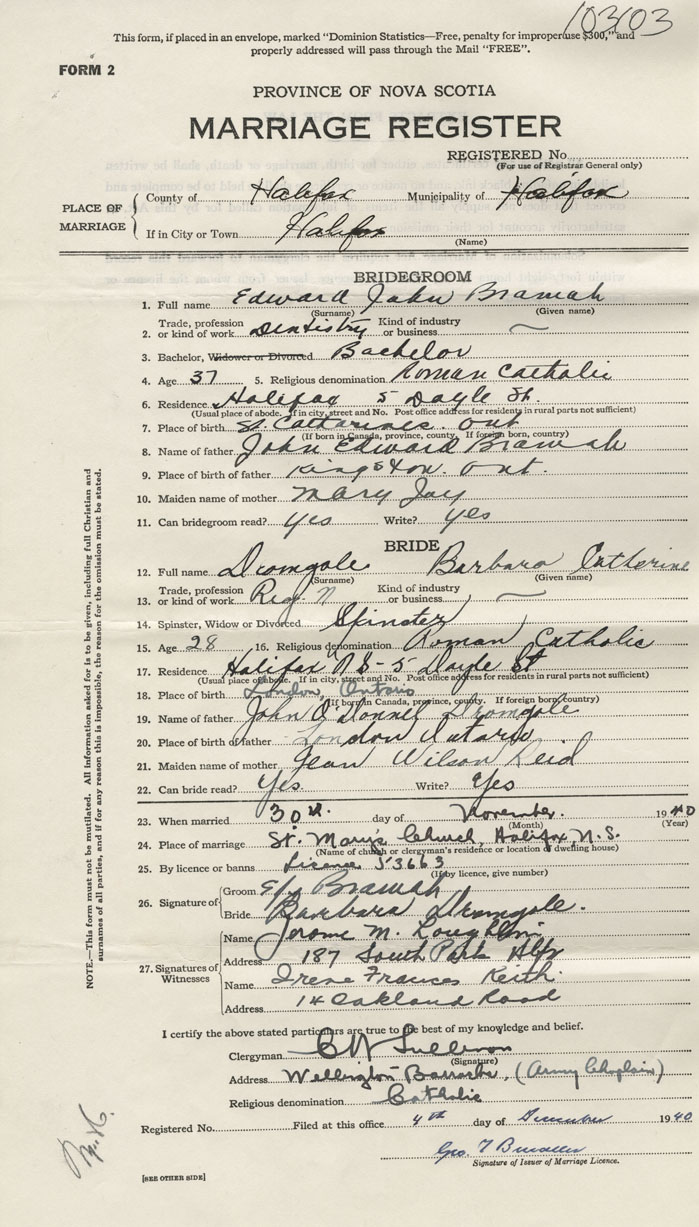 103103
This form, if placed in an envelope, marked "Dominion Statistics—Free, penalty for improper use $300," and
properly addressed will pass through the Mail "FREE".
FORM 2
PROVINCE OF NOVA SCOTIA
MARRIAGE REGISTER
REGISTERED No.
(For use of Registrar General only)
PLACE OF MARRIAGE
County of Halifax Municipality of Halifax
If in City or Town Halifax
(Name)
BRIDEGROOM
1. Full name Edward John Bramah
(Surname) (Given name)
2. Trade, profession or kind of work Dentistry Kind of industry or business
3. Bachelor, Widower or Divorced Bachelor
4. Age 37 5. Religious denomination Roman Catholic
6. Residence Halifax 5 Doyle St.
(Usual place of abode. If in city, street and No. Post office address for residents in rural parts not sufficient)
7. Place of birth St. Catharines. Ont
(If born in Canada, province, county. If foreign born, country)
8. Name of father John Edward Bramah
9. Place of birth of father Kingston. Ont.
10. Maiden name of mother Mary Jay
11. Can bridegroom read? yes Write? yes
BRIDE
12. Full name Dromgole Barbara Catherine
(Surname) (Given name)
13. Trade, profession or kind of work Reg. N Kind of industry or business
14. Spinster, Widow or Divorced Spinster
15. Age 28 16. Religious denomination Roman Catholic
17. Residence Halifax N S - 5 Doyle St
(Usual place of abode. If in city, street and No. Post office address for residents in rural parts not sufficient)
18. Place of birth London, Ontario
(If born in Canada, province, county. If foreign born, country)
19. Name of father John O'Donnel Dromgole
20. Place of birth of father London Ontario.
21. Maiden name of mother Jean Wilson Reid
22. Can bride read? Yes. Write? Yes
23. When married 30th. day of November. 1940
(Month) (Year)
24. Place of marriage St. Mary's Church, Halifax, N.S.
(Name of church or clergyman's residence or location of dwelling house)
25. By licence or banns Licence J3663
(If by licence, give number)
26. Signature of
Groom E/J Bramah
Bride Barbara Dromgole.
27. Signatures of Witnesses
Name Jerome M. Loughlin
Address 187 South Park Hlfx
Name Irene Frances Keith.
Address 14 Oakland Road
I certify the above stated particulars are true to the best of my knowledge and belief.
Clergyman Sullivan
(Signature)
Address Wellington Barracks, (Army Chaplain)
Religious denomination Catholic
Registered No. Filed at this office 4th day of December 1940
Geo. T
Signature of Issuer of Marriage Licence.
[SEE OTHER SIDE]
NOTE.—This form must not be mutilated. All information asked for is to be given, including full Christian and
surnames of all parties, and if for any reason this is impossible, the reason for the omission must be stated.